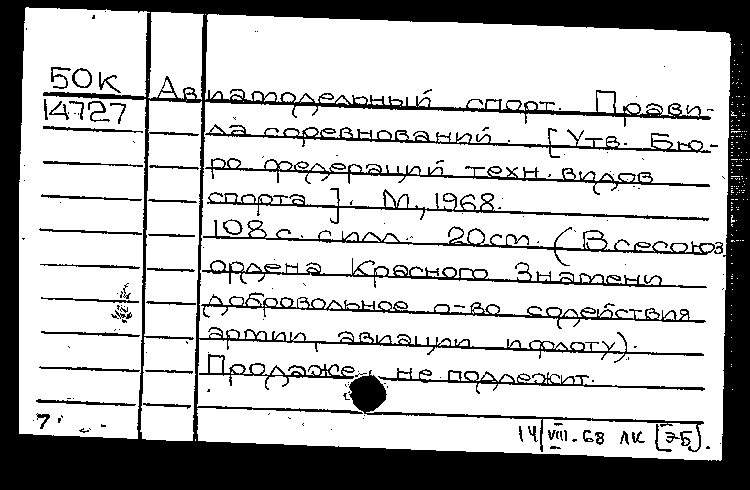 50К Авиамодельный спорт. Прави-
14727
ла соревнований. [Утв. Бю-
ро федераций техн. видов
спорта]. М., 1968.
108 с. с илл. 20 см. (Всесоюз.
ордена Красного Знамени
добровольное о-во содействия
армии, авиации и флоту).
Продаже не подлежит.
7
14/VIII-68 ЛК [Э-5].